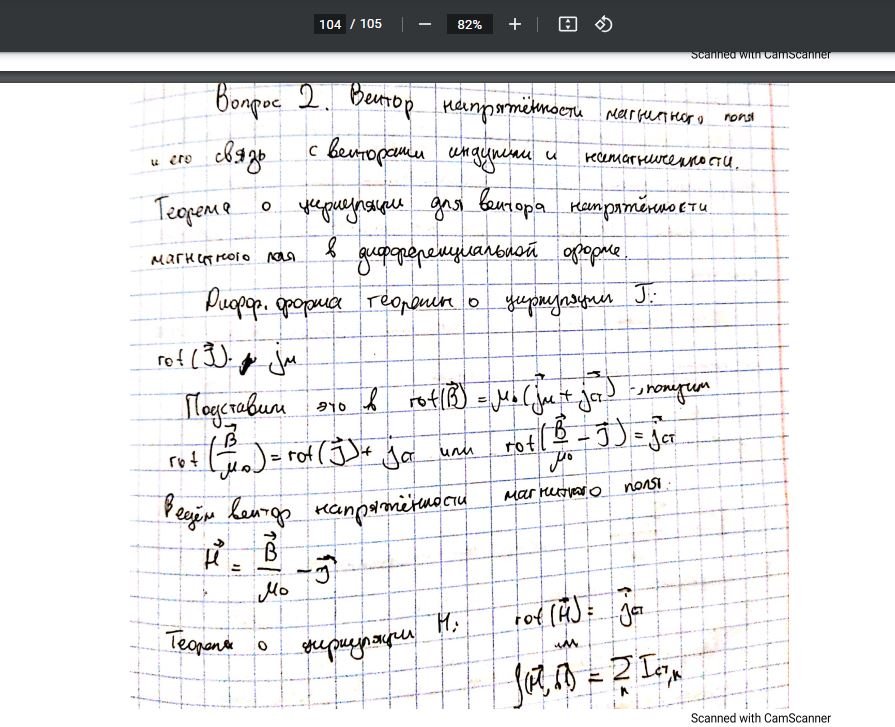 104 / 105 — 82% +
Scanned with CamScanner
Вопрос 2. Вектор напряжённости магнитного поля
и его связь с векторами индукции и намагниченности.
Теорема о циркуляции для вектора напряжённости
магнитного поля в дифференциальной форме.
Дифф. форма теоремы о циркуляции J:
rot(J⃗) = jм
Подставим это в rot(B⃗) = μ₀(j⃗м + j⃗ст), получим
rot(B⃗/μ₀) = rot(J⃗) + jст или rot(B⃗/μ₀ − J⃗) = j⃗ст
Введём вектор напряжённости магнитного поля.
H⃗ = B⃗/μ₀ − J⃗
Теорема о циркуляции H: rot(H⃗) = j⃗ст
или
∫(H⃗, dl⃗) = Σₖ Iст,к
Scanned with CamScanner